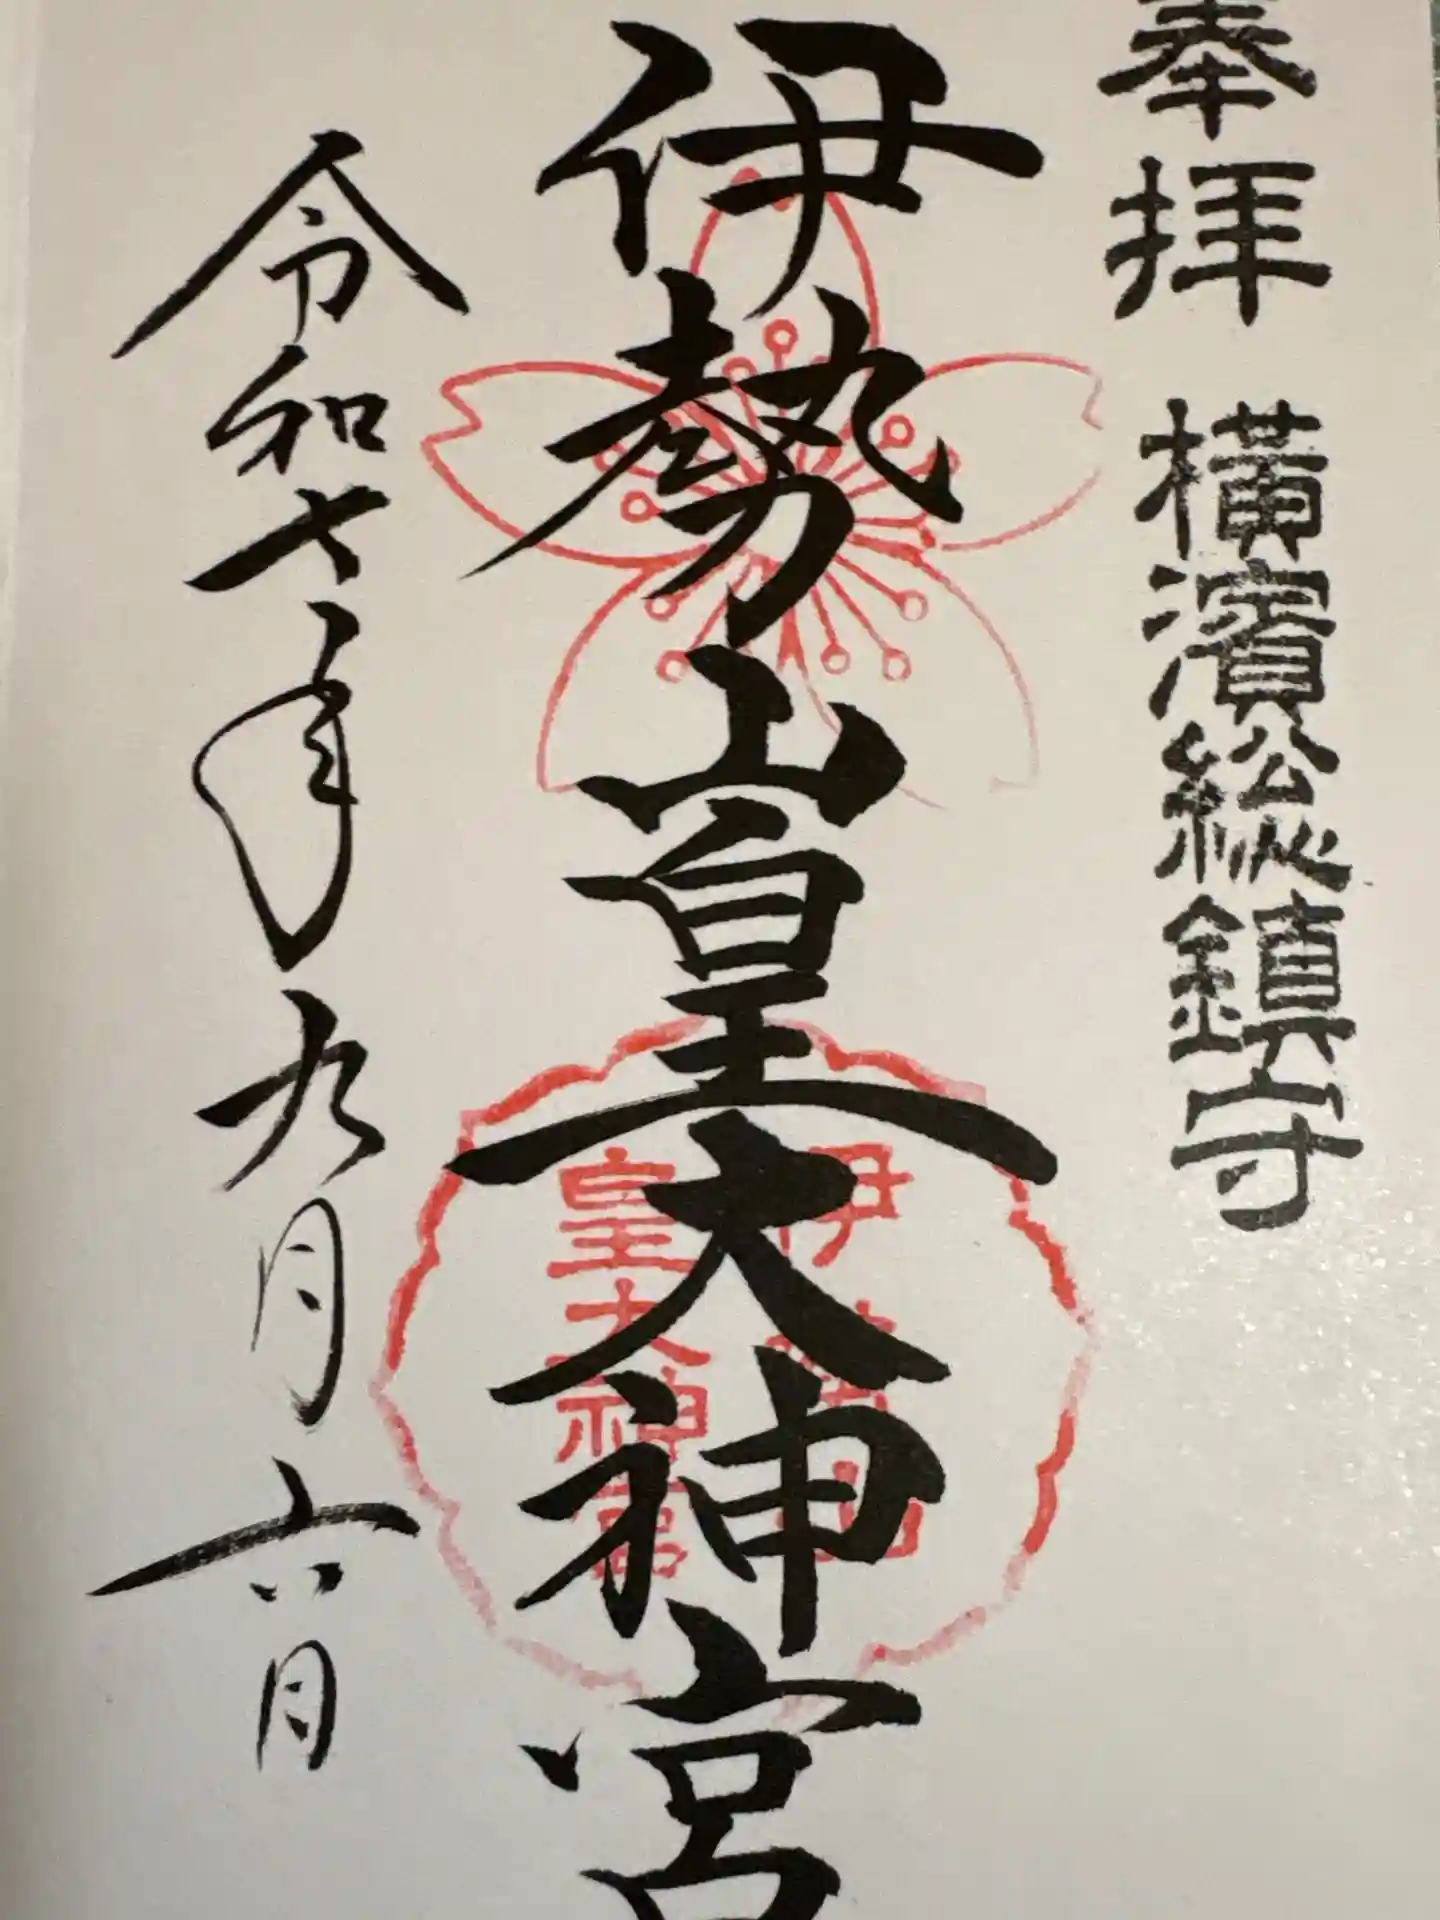 奉拝 横濱総鎮守
伊勢山皇大神宮
伊勢山
皇大神宮
令和七年九月六日